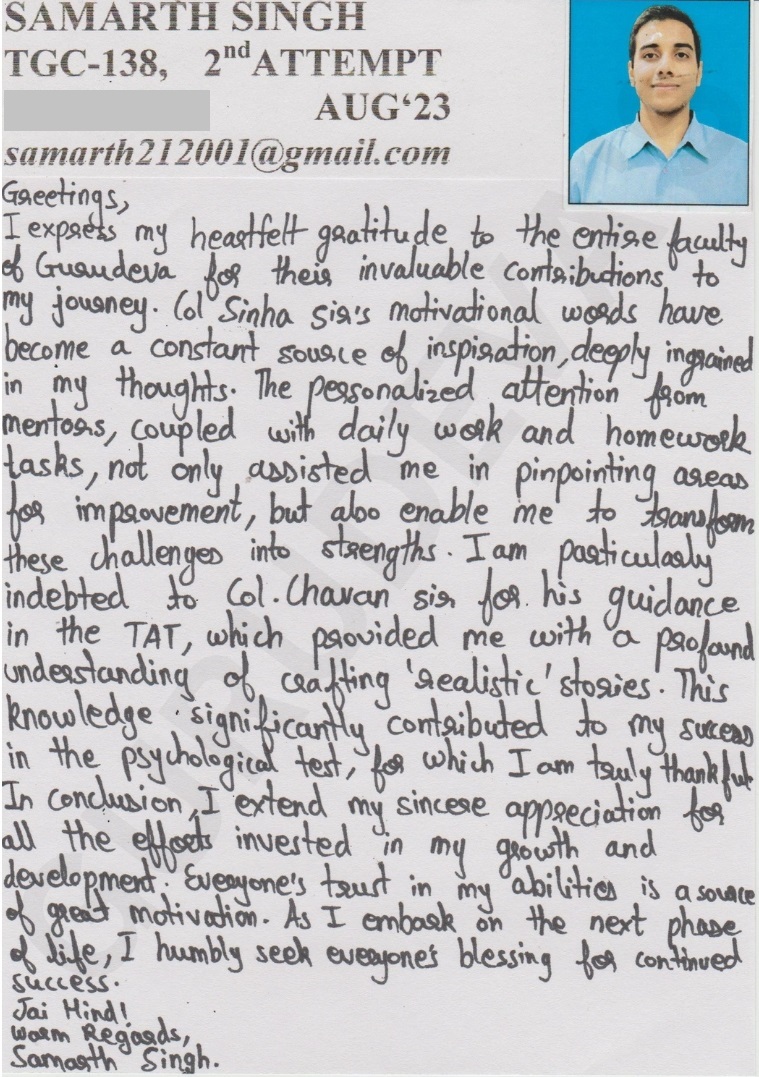 SAMARTH SINGH
TGC-138, 2nd ATTEMPT
AUG‘23
samarth212001@gmail.com
Greetings,
I express my heartfelt gratitude to the entire faculty
of Gurudeva for their invaluable contributions to
my journey. Col Sinha Sir's motivational words have
become a constant source of inspiration, deeply ingrained
in my thoughts. The personalized attention from
mentors, coupled with daily work and homework
tasks, not only assisted me in pinpointing areas
for improvement, but also enable me to transform
these challenges into strengths. I am particularly
indebted to Col. Chavan sir for his guidance
in the TAT, which provided me with a profound
understanding of crafting 'realistic' stories. This
knowledge significantly contributed to my success
in the psychological test, for which I am truly thankful.
In conclusion, I extend my sincere appreciation for
all the efforts invested in my growth and
development. Everyone's trust in my abilities is a source
of great motivation. As I embark on the next phase
of life, I humbly seek everyone's blessing for continued
success.
Jai Hind!
Warm Regards,
Samarth Singh.
GURUDEVA